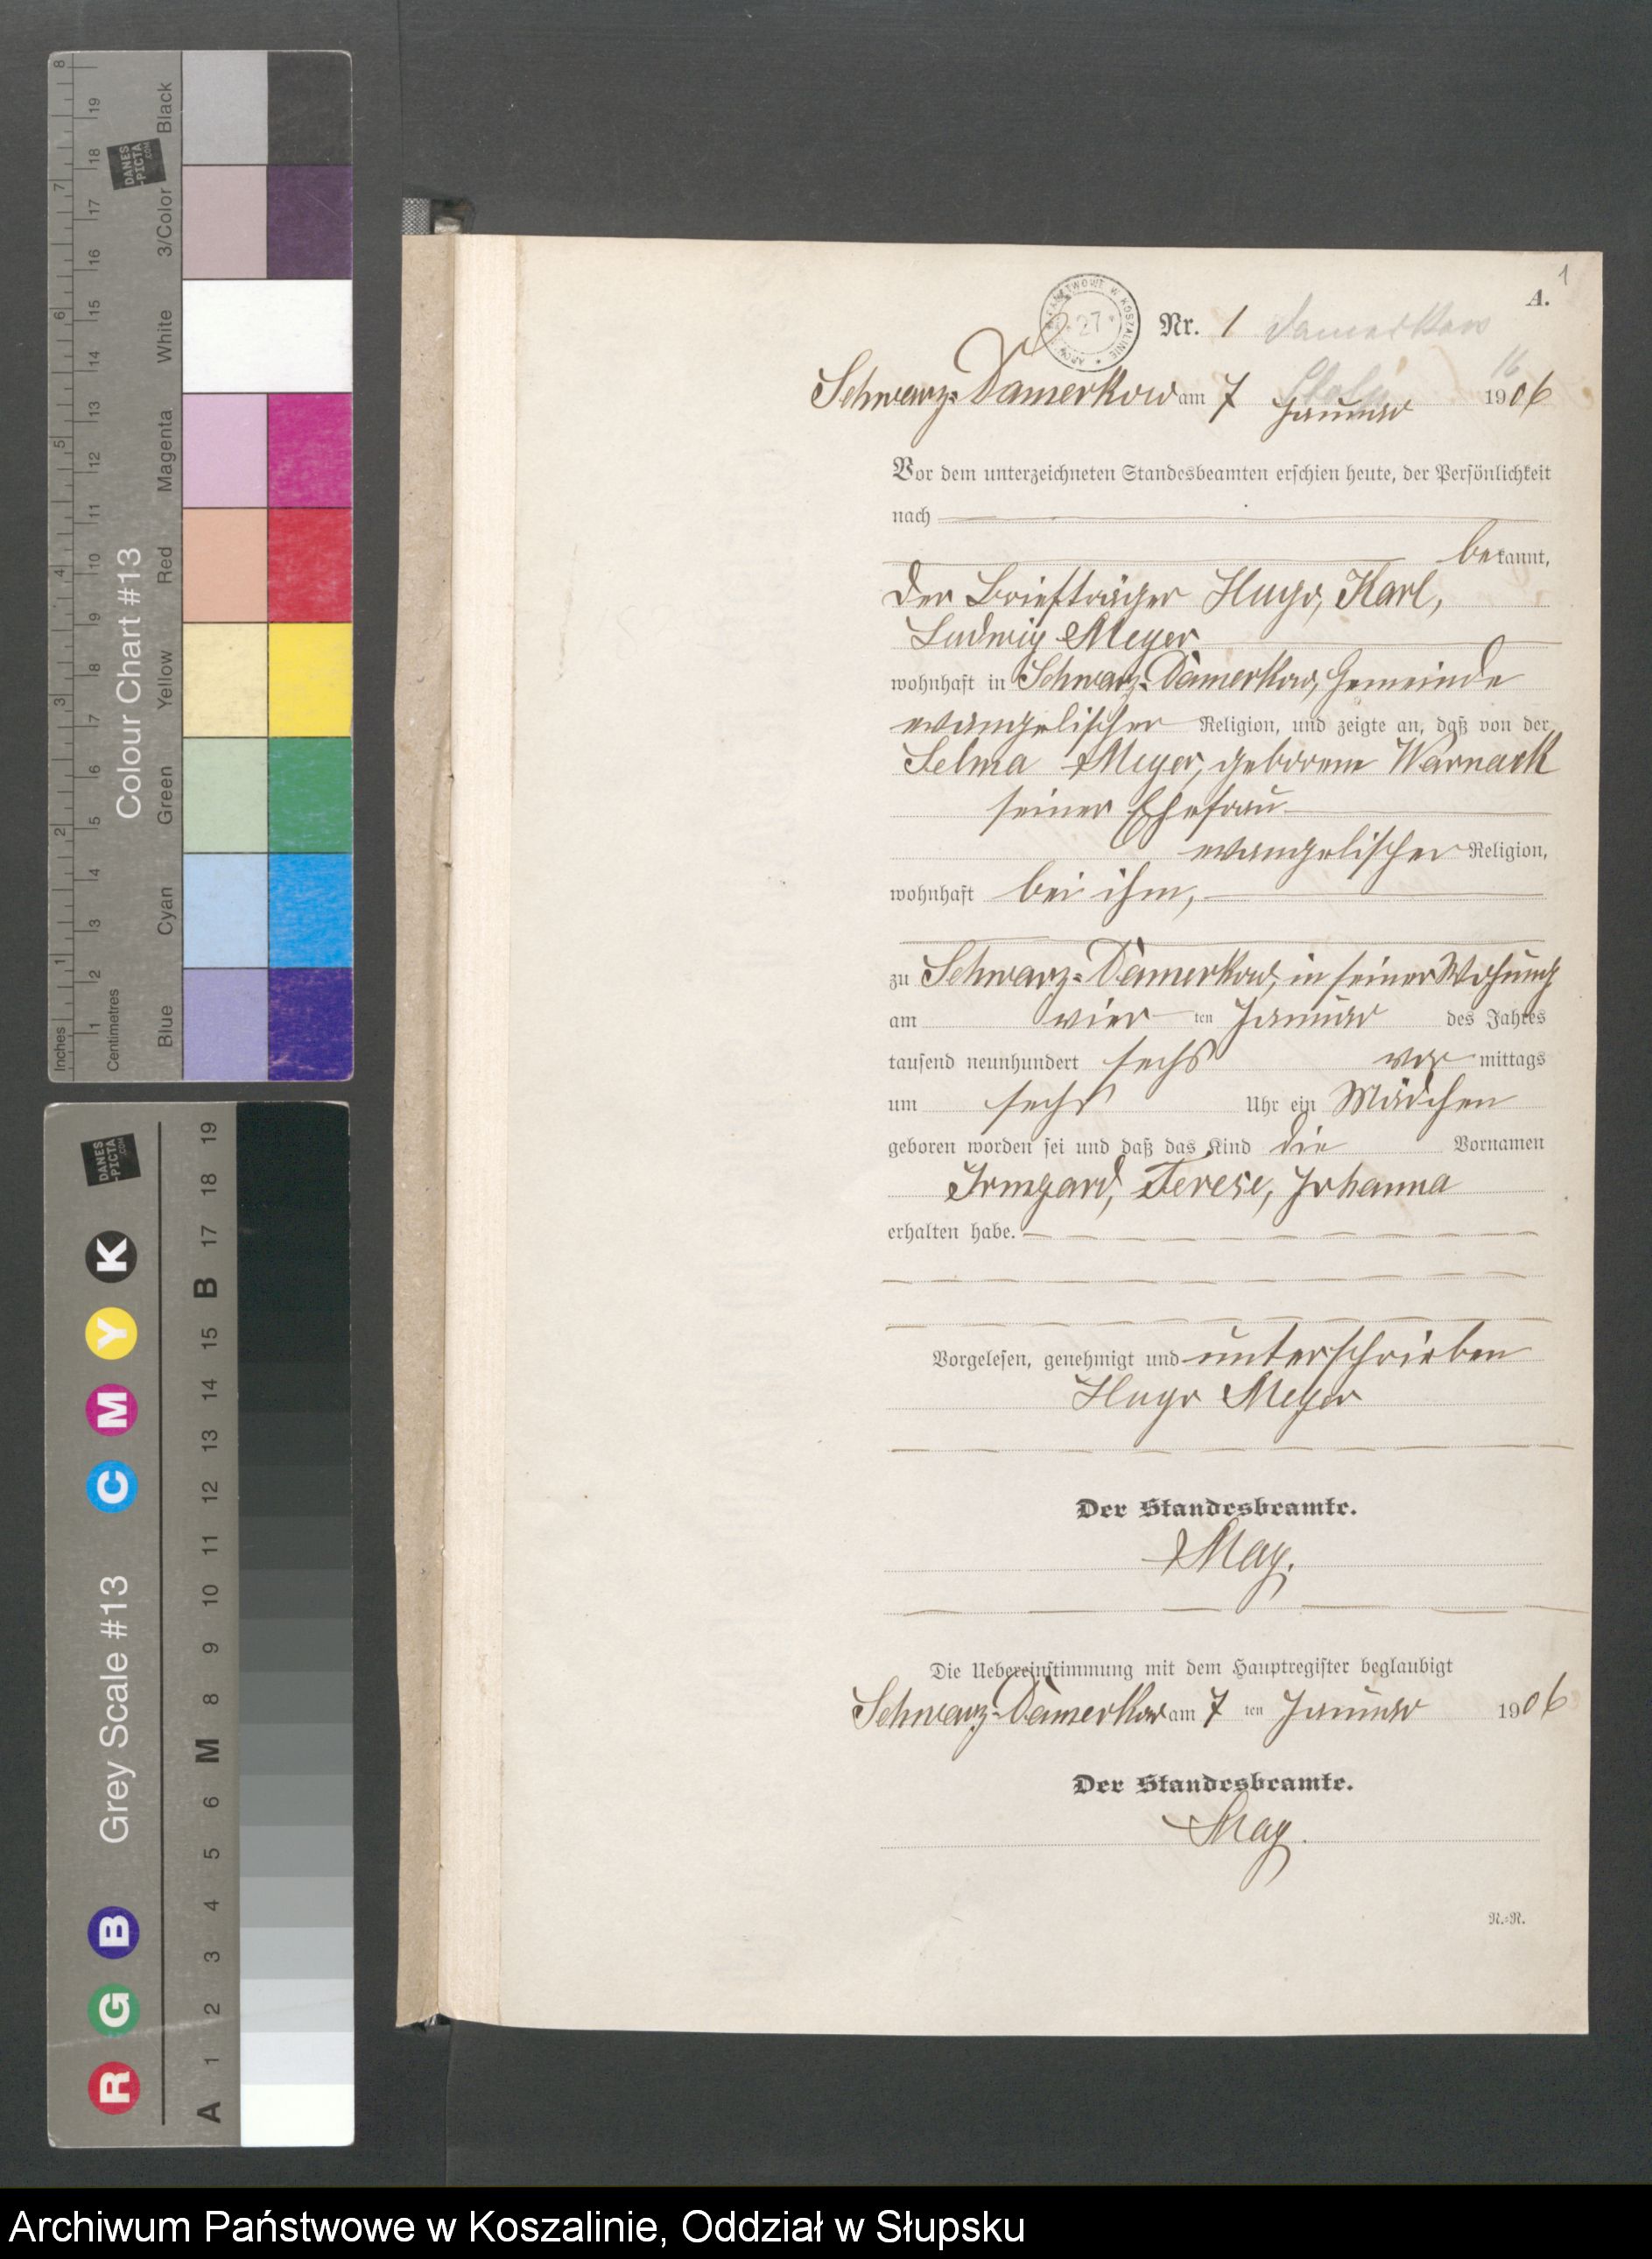 1
A.
Nr. 1 Damerkow
Schwarz-Damerkow am 7 Januar 1906
Vor dem unterzeichneten Standesbeamten erschien heute, der Persönlichkeit
nach
bekannt,
der Briefträger Hugo, Karl,
Ludwig Meyer
wohnhaft in Schwarz-Damerkow, Gemeinde
evangelischer Religion, und zeigte an, daß von der
Selma Meyer, geborene Warnack
seiner Ehefrau
evangelischer Religion,
wohnhaft bei ihm,
zu Schwarz-Damerkow, in seiner Wohung
am vier ten Januar des Jahres
tausend neunhundert sechs vor mittags
um sechs Uhr ein Mädchen
geboren worden sei und daß das Kind die Vornamen
Irmgard, Terese, Johanna
erhalten habe.
Vorgelesen, genehmigt und unterschrieben
Hugo Meyer
Der Standesbeamte.
May.
Die Uebereinstimmung mit dem Hauptregister beglaubigt
Schwarz-Damerkow am 7 ten Januar 1906
Der Standesbeamte.
May.
N.-R.
Colour Chart #13
Black
3/Color
White
Magenta
Red
Yellow
Green
Cyan
Blue
Inches
Centimetres
1 2 3 4 5 6 7 8
1 2 3 4 5 6 7 8 9 10 11 12 13 14 15 16 17 18 19
DANES
-PICTA
.COM
Grey Scale #13
R G B C M Y K
A 1 2 3 4 5 6 M 8 9 10 11 12 13 14 15 B 17 18 19
DANES
-PICTA
.COM
Archiwum Państwowe w Koszalinie, Oddział w Słupsku